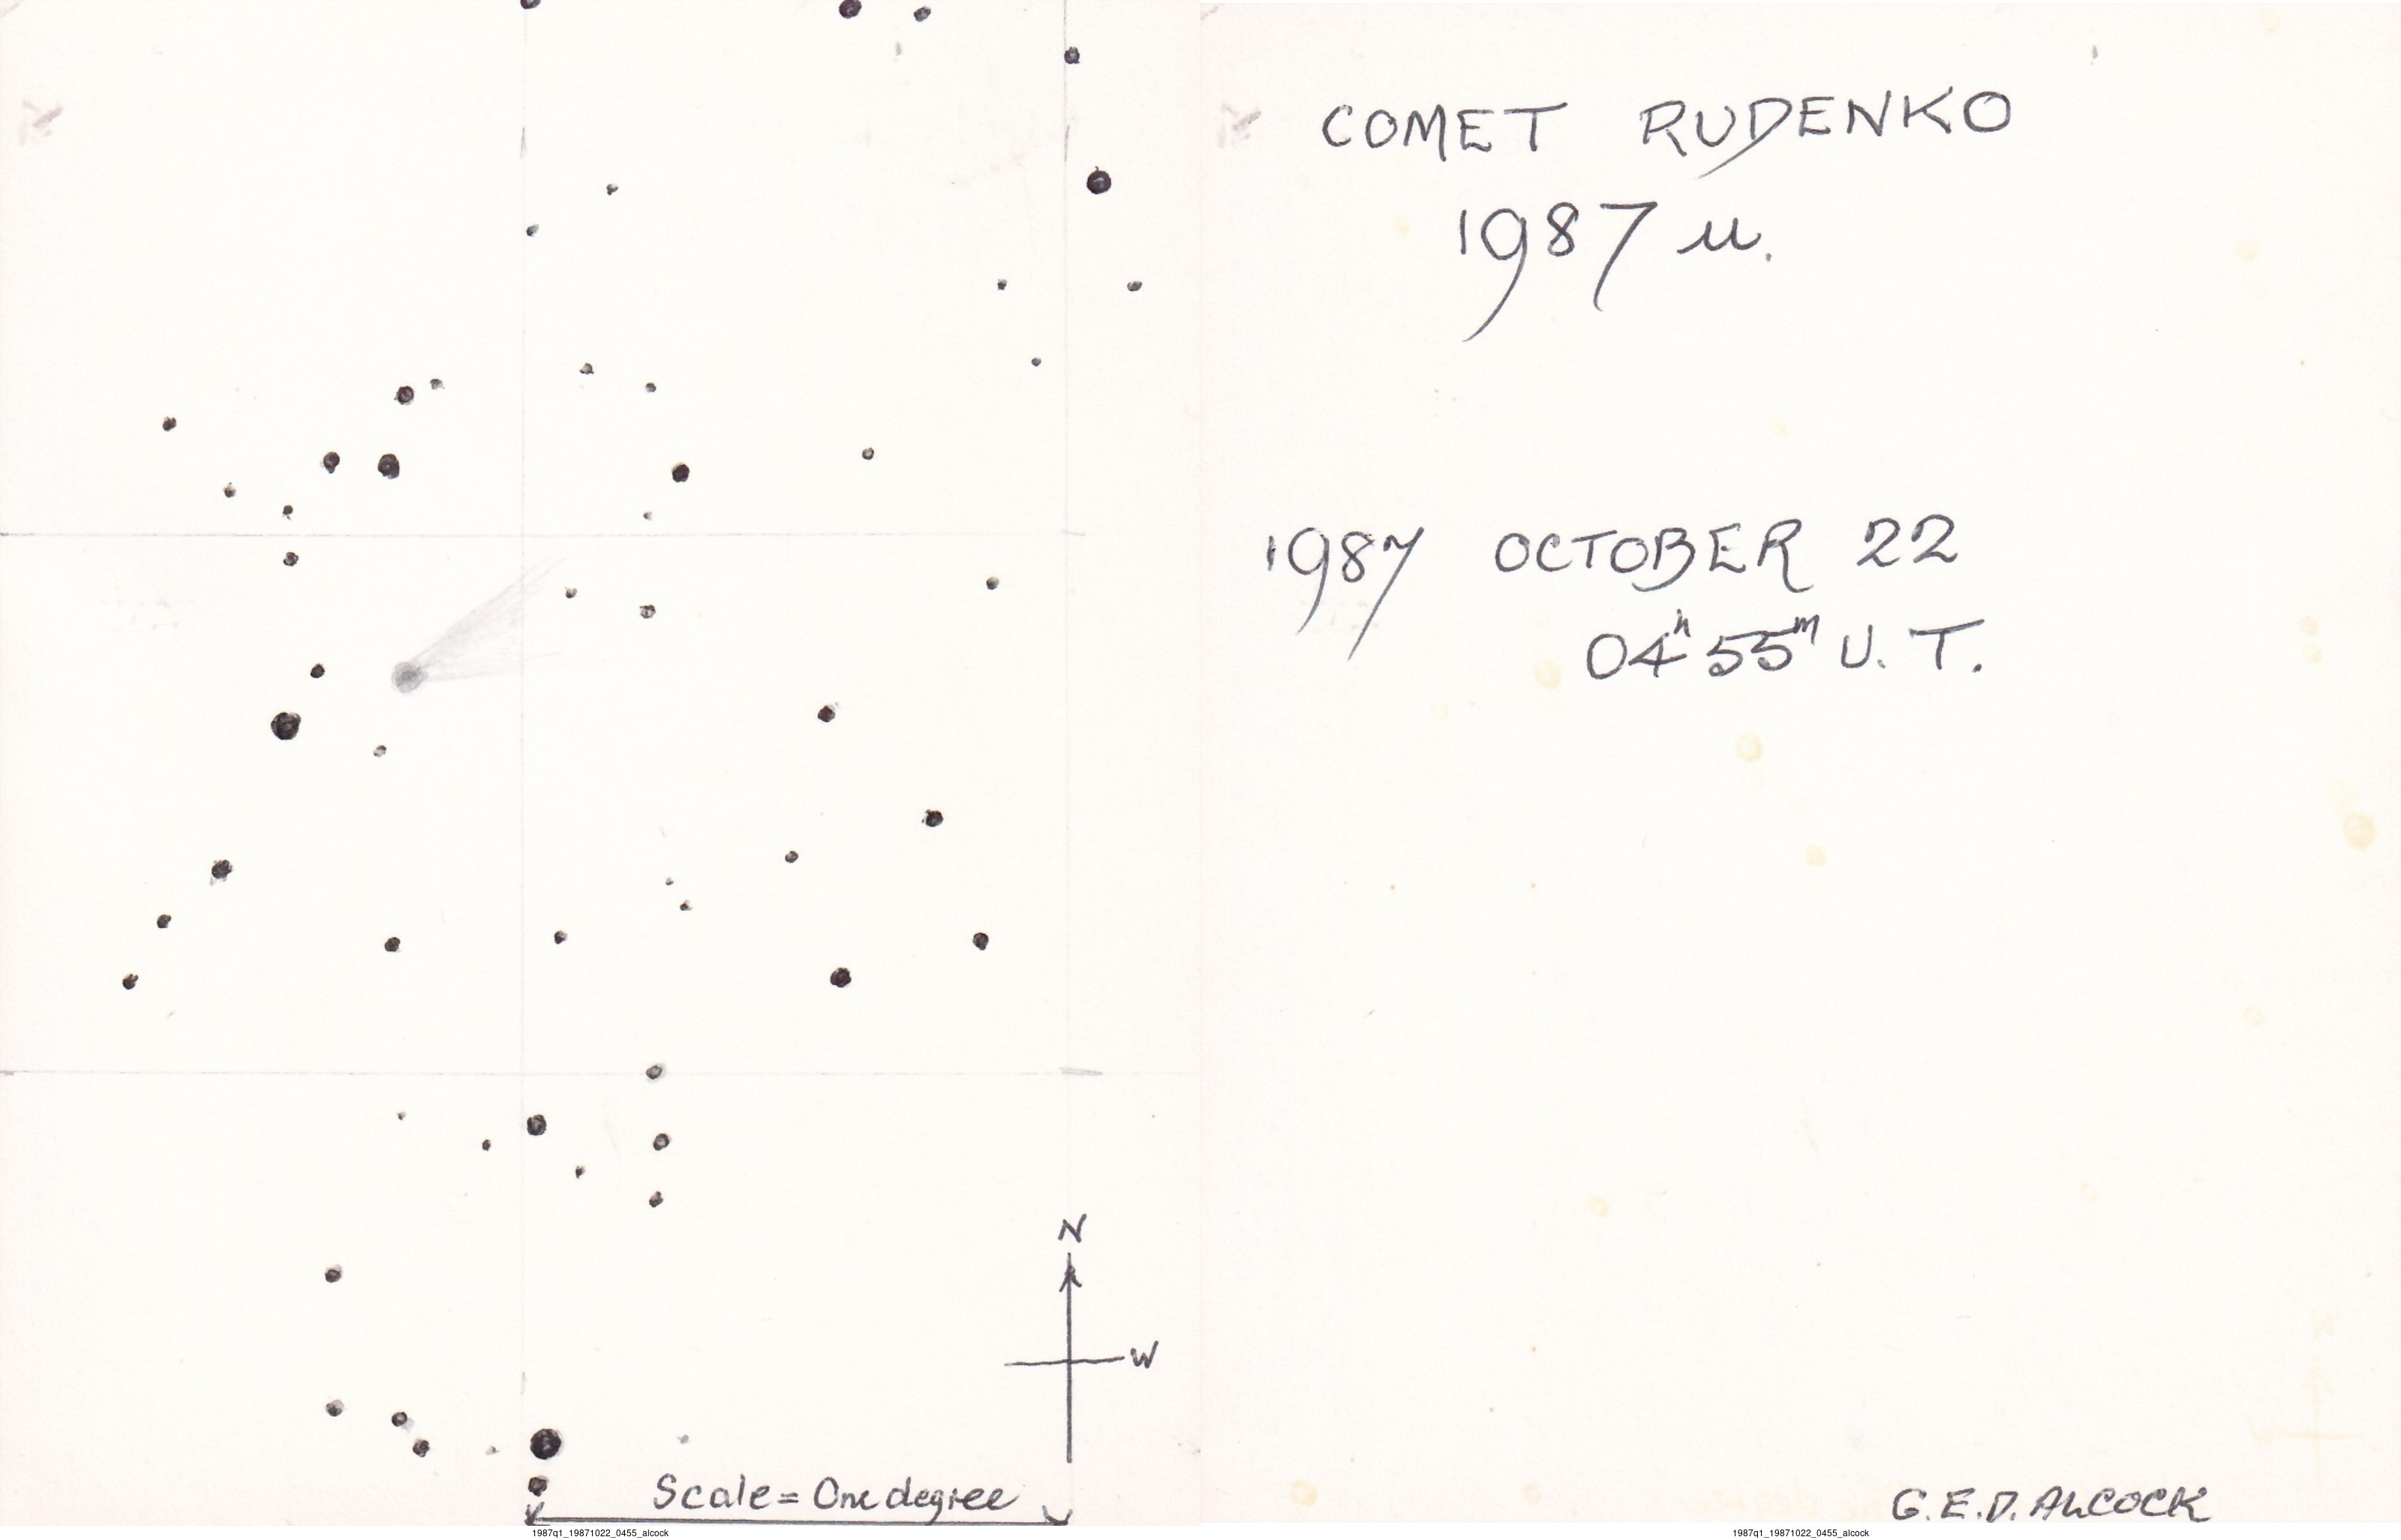 N
W
Scale = One degree
1987q1_19871022_0455_alcock
COMET RUDENKO
1987 u.
1987 OCTOBER 22
04h 55m U.T.
G.E.D. ALCOCK
1987q1_19871022_0455_alcock